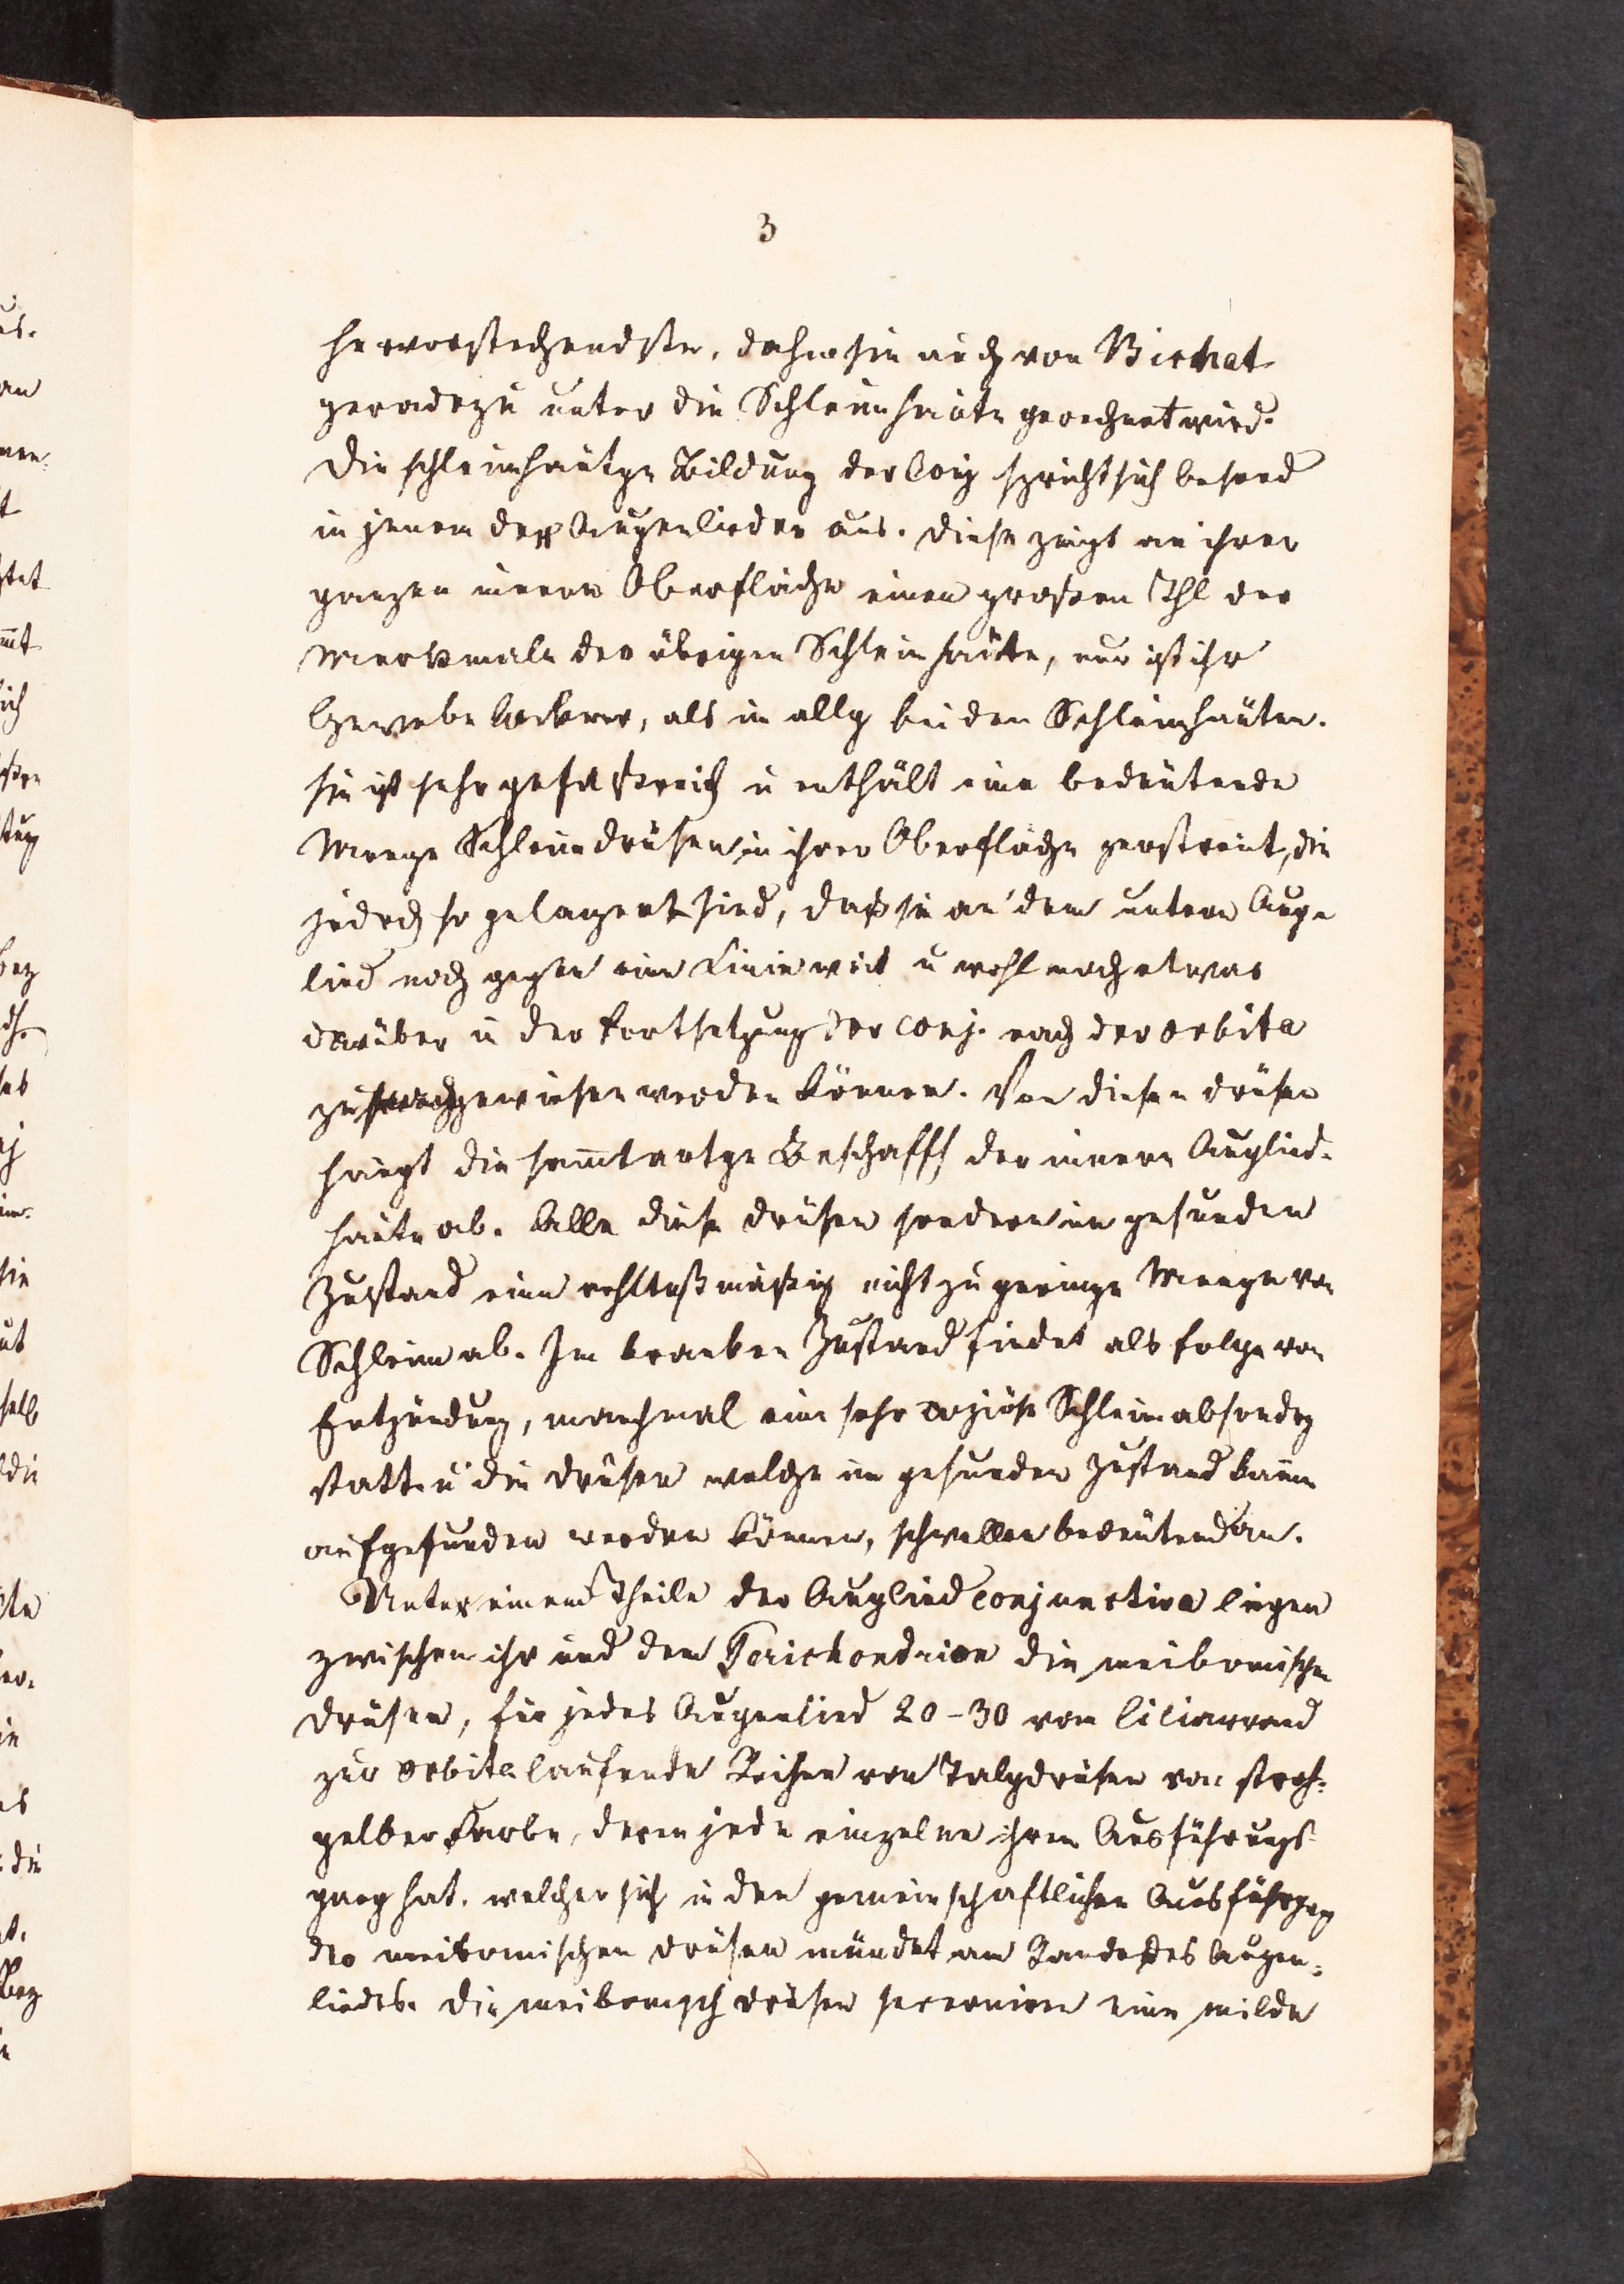 3
hervorstechendste, daher sie auch von Bichat
geradezu unter die Schleimhäute gerechnet wird.
Die schleimhäutge Bildung der Conj spricht sich besond
in jenem der Augenlieder aus. Diese zeigt an ihrer
ganzen innern Oberfläche einen großen Thl der
Merkmale der übrigen Schleimhäute, nur ist ihr
Gewebe lockerer, als im allg bei den Schleimhäuten.
Sie ist sehr gefäßreich u enthält eine bedeutende
Menge Schleimdrüsen in ihrer Oberfläche zerstreut, die
jedoch so gelagert sind, daß sie an dem untern Auge
lied noch gegen eine Linie weit u wohl noch etwas
darüber in der Fortsetzung der Conj. nach der orbita
zu nachgewiesen werden können. Von diesen Drüsen
hängt die sammtartge Beschaffh der innern Auglied-
häute ab. Alle diese Drüsen sondern im gesunden
Zustand eine vhltnßmäßig nicht zu geringe Menge von
Schleim ab. Im kranken Zustand findet als Folge von
Entzündung, manchmal eine sehr copiöse Schleimabsondrg
statt u die Drüsen welche im gesunden Zustand kaum
aufgefunden werden können, schwellen bedeutend an.
Unter einem Theile der Auglied conjunctiva liegen
zwischen ihr und dem Perichondrion die meibomischen
Drüsen, für jedes Augenlied 20-30 vom Ciliarrand
zur orbita laufende Reihen von Talgdrüsen von stroh-
gelber Farbe, deren jede einzelne ihren Ausführungs-
gang hat, welcher sich in den gemeinschaftlichen Ausführgag
der meibomischen Drüsen mündet am Rande des Augen-
liedes. Die meibomisch Drüsen secerniren eine milde